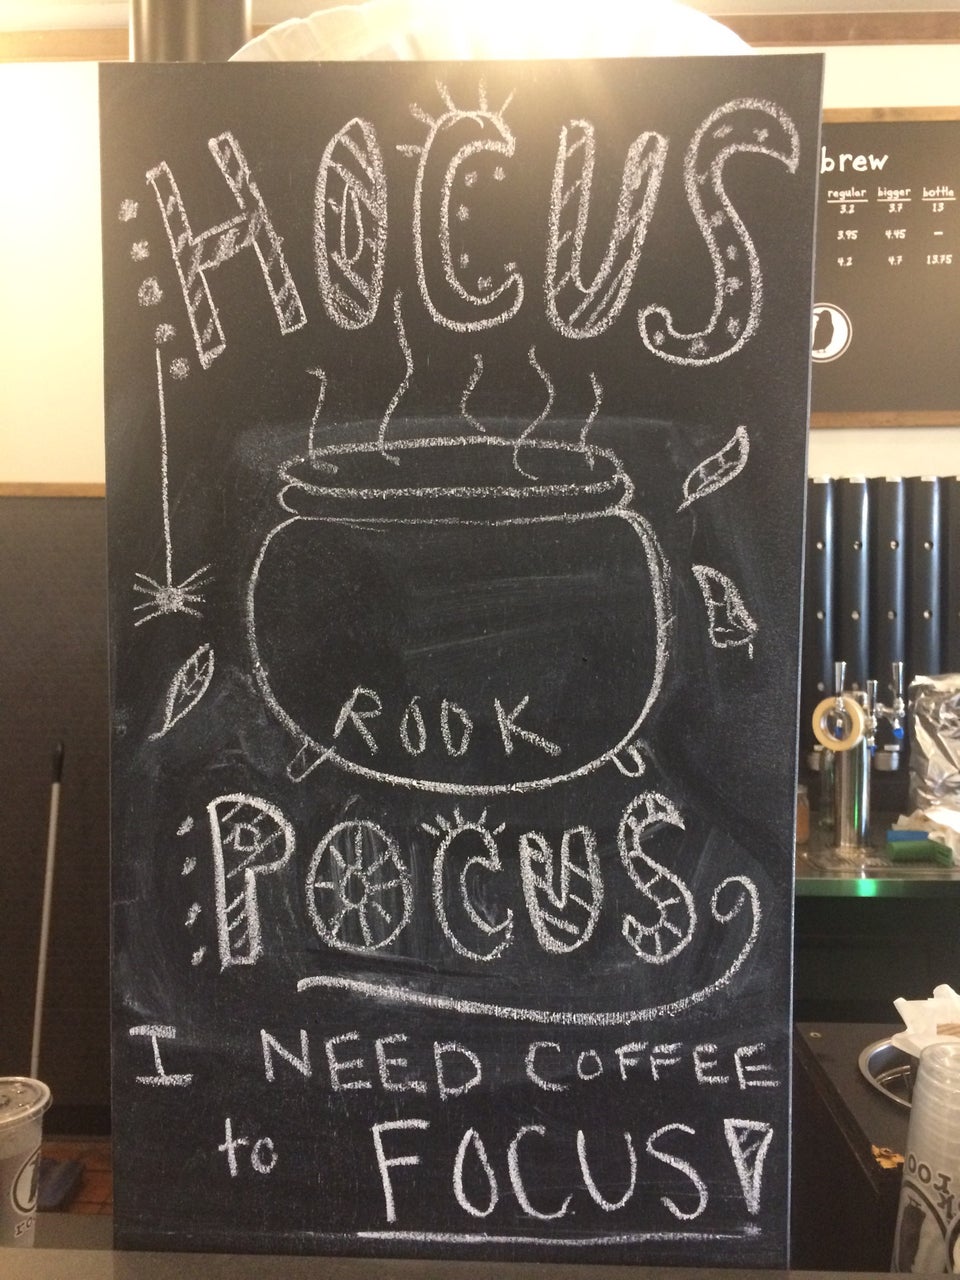 HOCUS
ROOK
POCUS
I NEED COFFEE
to FOCUS!
brew
regular bigger bottle
3.2 3.7 13
3.95 4.45 —
4.2 4.7 13.75